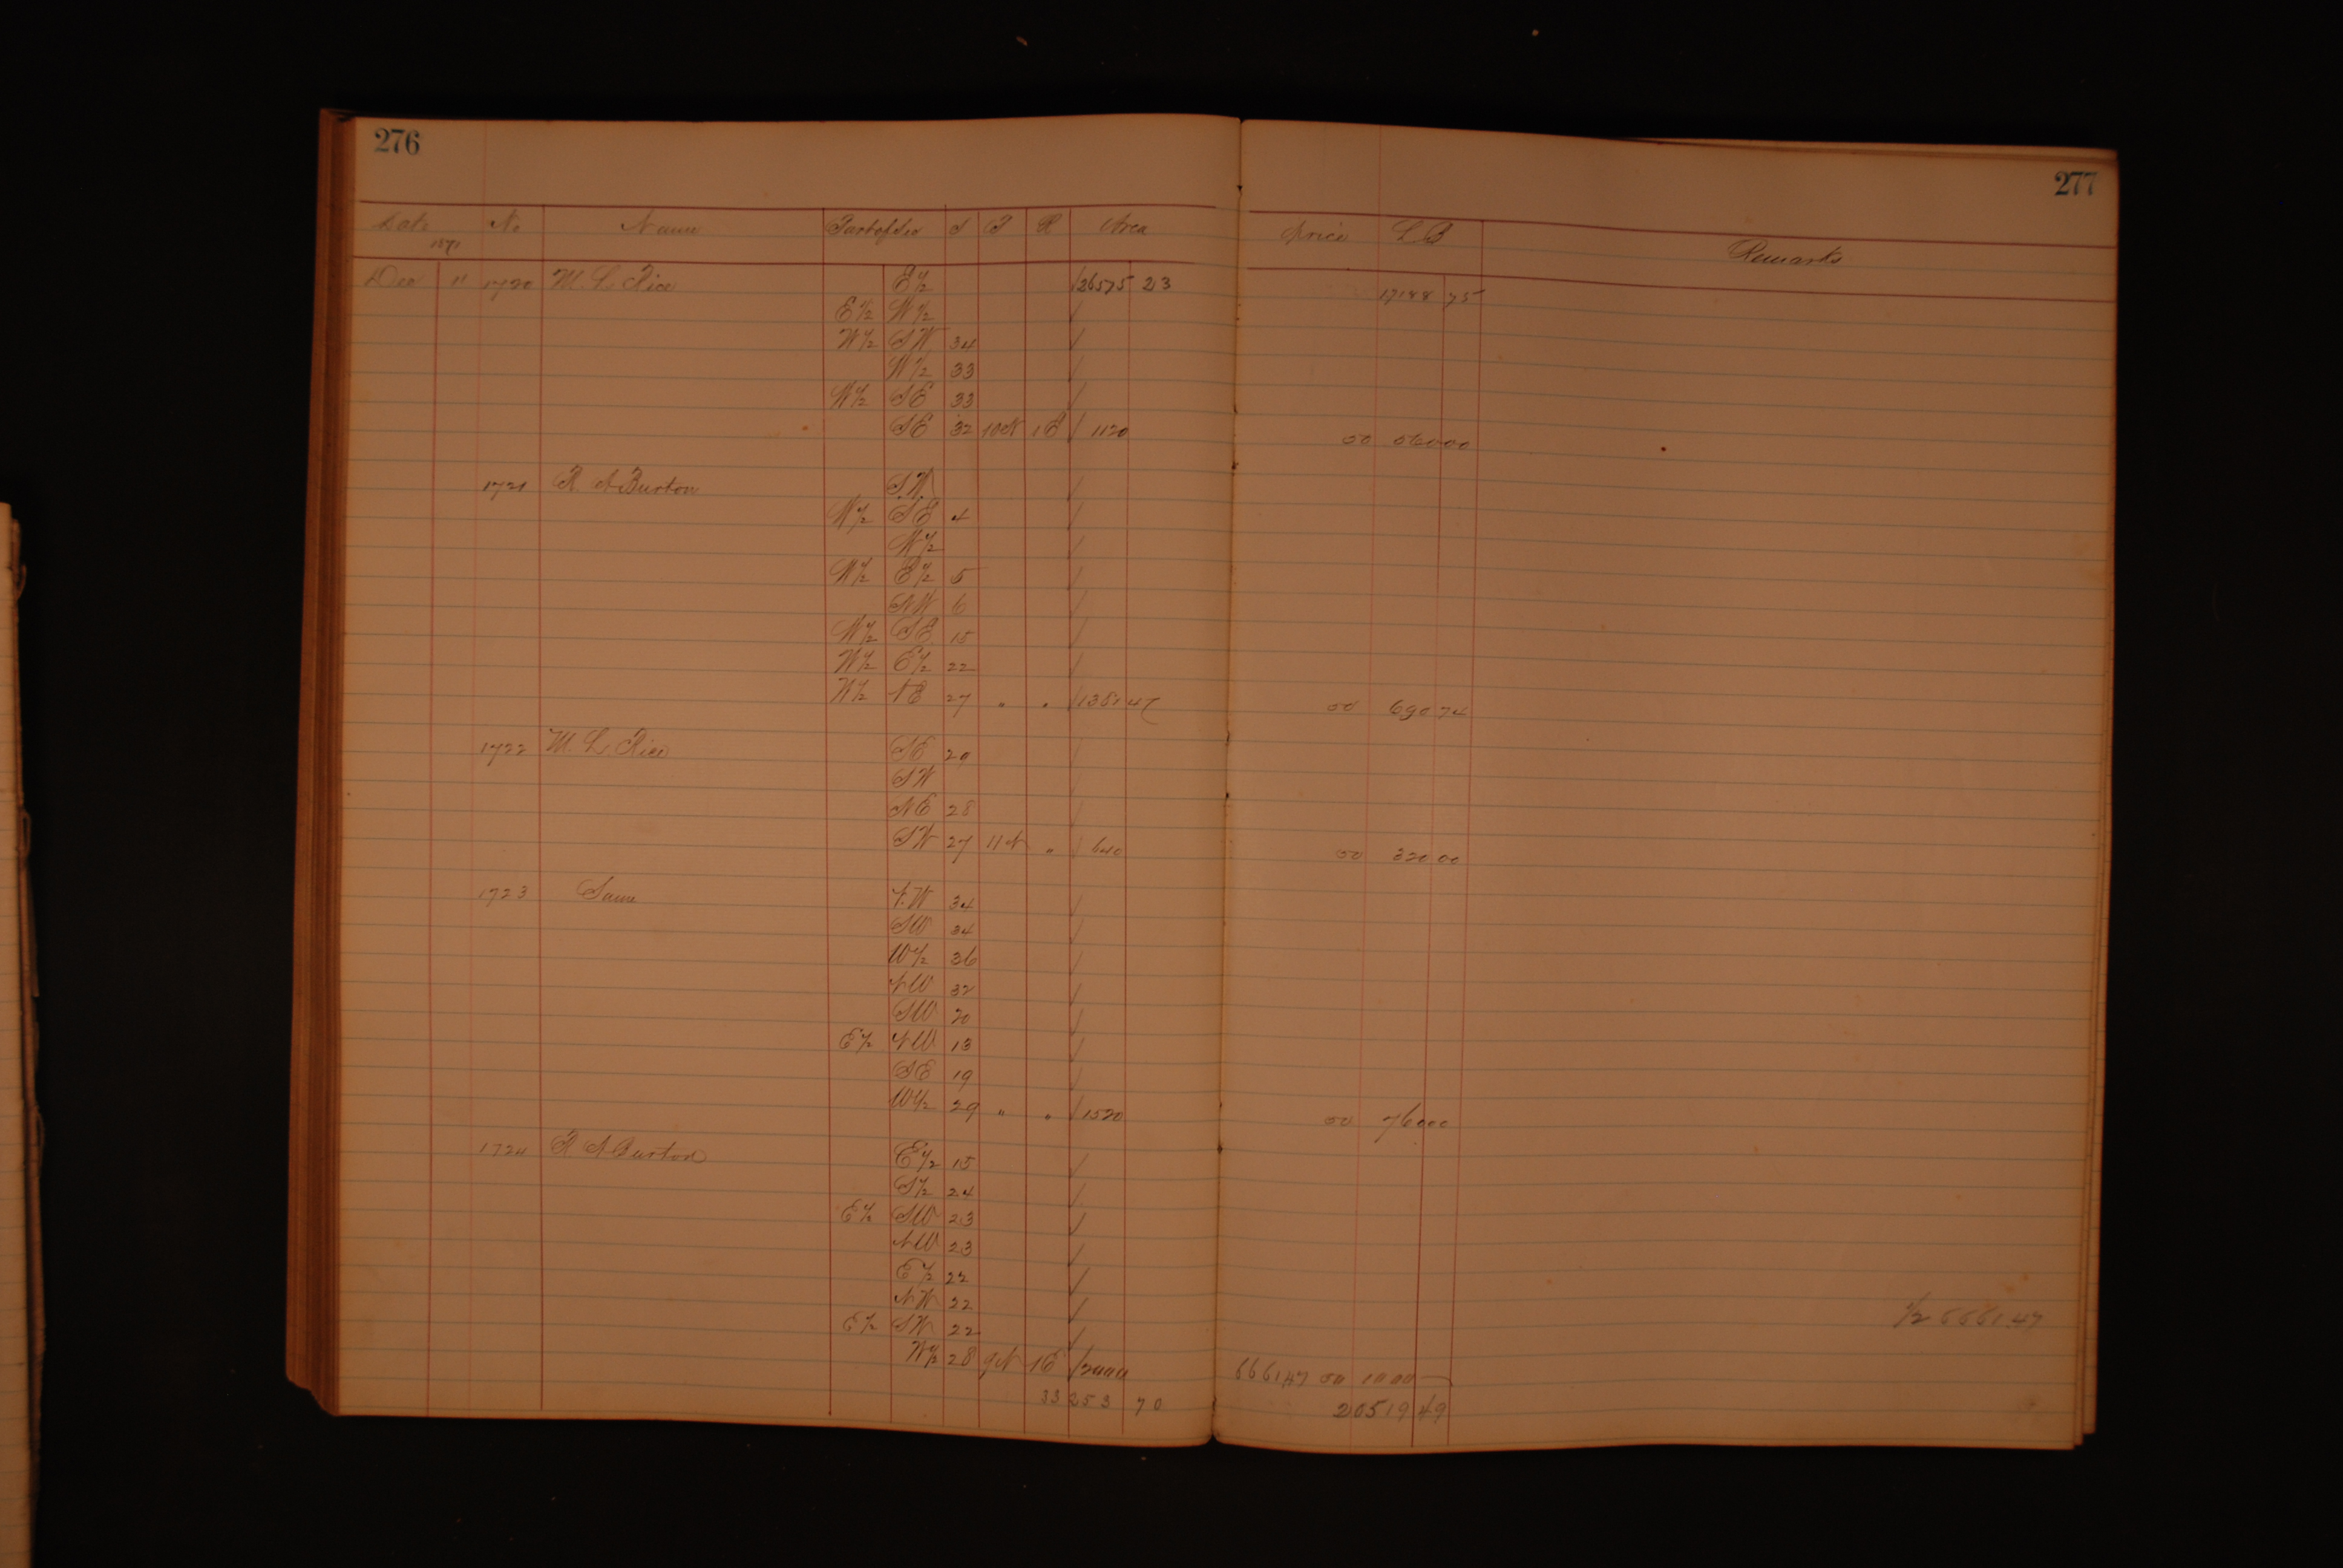 276
277
Date 1871 No Name Part of Sec S T R Area Price L B Remarks
Dec 11 1720 M. L. Rice E½ 26575 23 17188 75
E½ W½
W½ SW 34
W½ 33
W½ SE 33
SE 32 10N 1E 1120 50 560 00
1721 R. A Burton S.W.
W½ SE 4
W½
W½ E½ 5
NW 6
W½ SE 15
W½ E½ 22
W½ NE 27 " " 1381 47 50 690 74
1722 M. L. Rice SE 29
SW
NE 28
SW 27 11N " 640 50 320 00
1723 Same N.W 34
SW 34
W½ 36
NW 32
SW 20
E½ NW 13
SE 19
W½ 29 " " 1520 50 760 00
1724 R A Burton E½ 15
S½ 24
E½ SW 23
NW 23
E½ 22
NW 22
E½ SW 22
½ 6661.47
W½ 28 9N 1E 2000 6661.47 50 1000
33253 70 20519 49